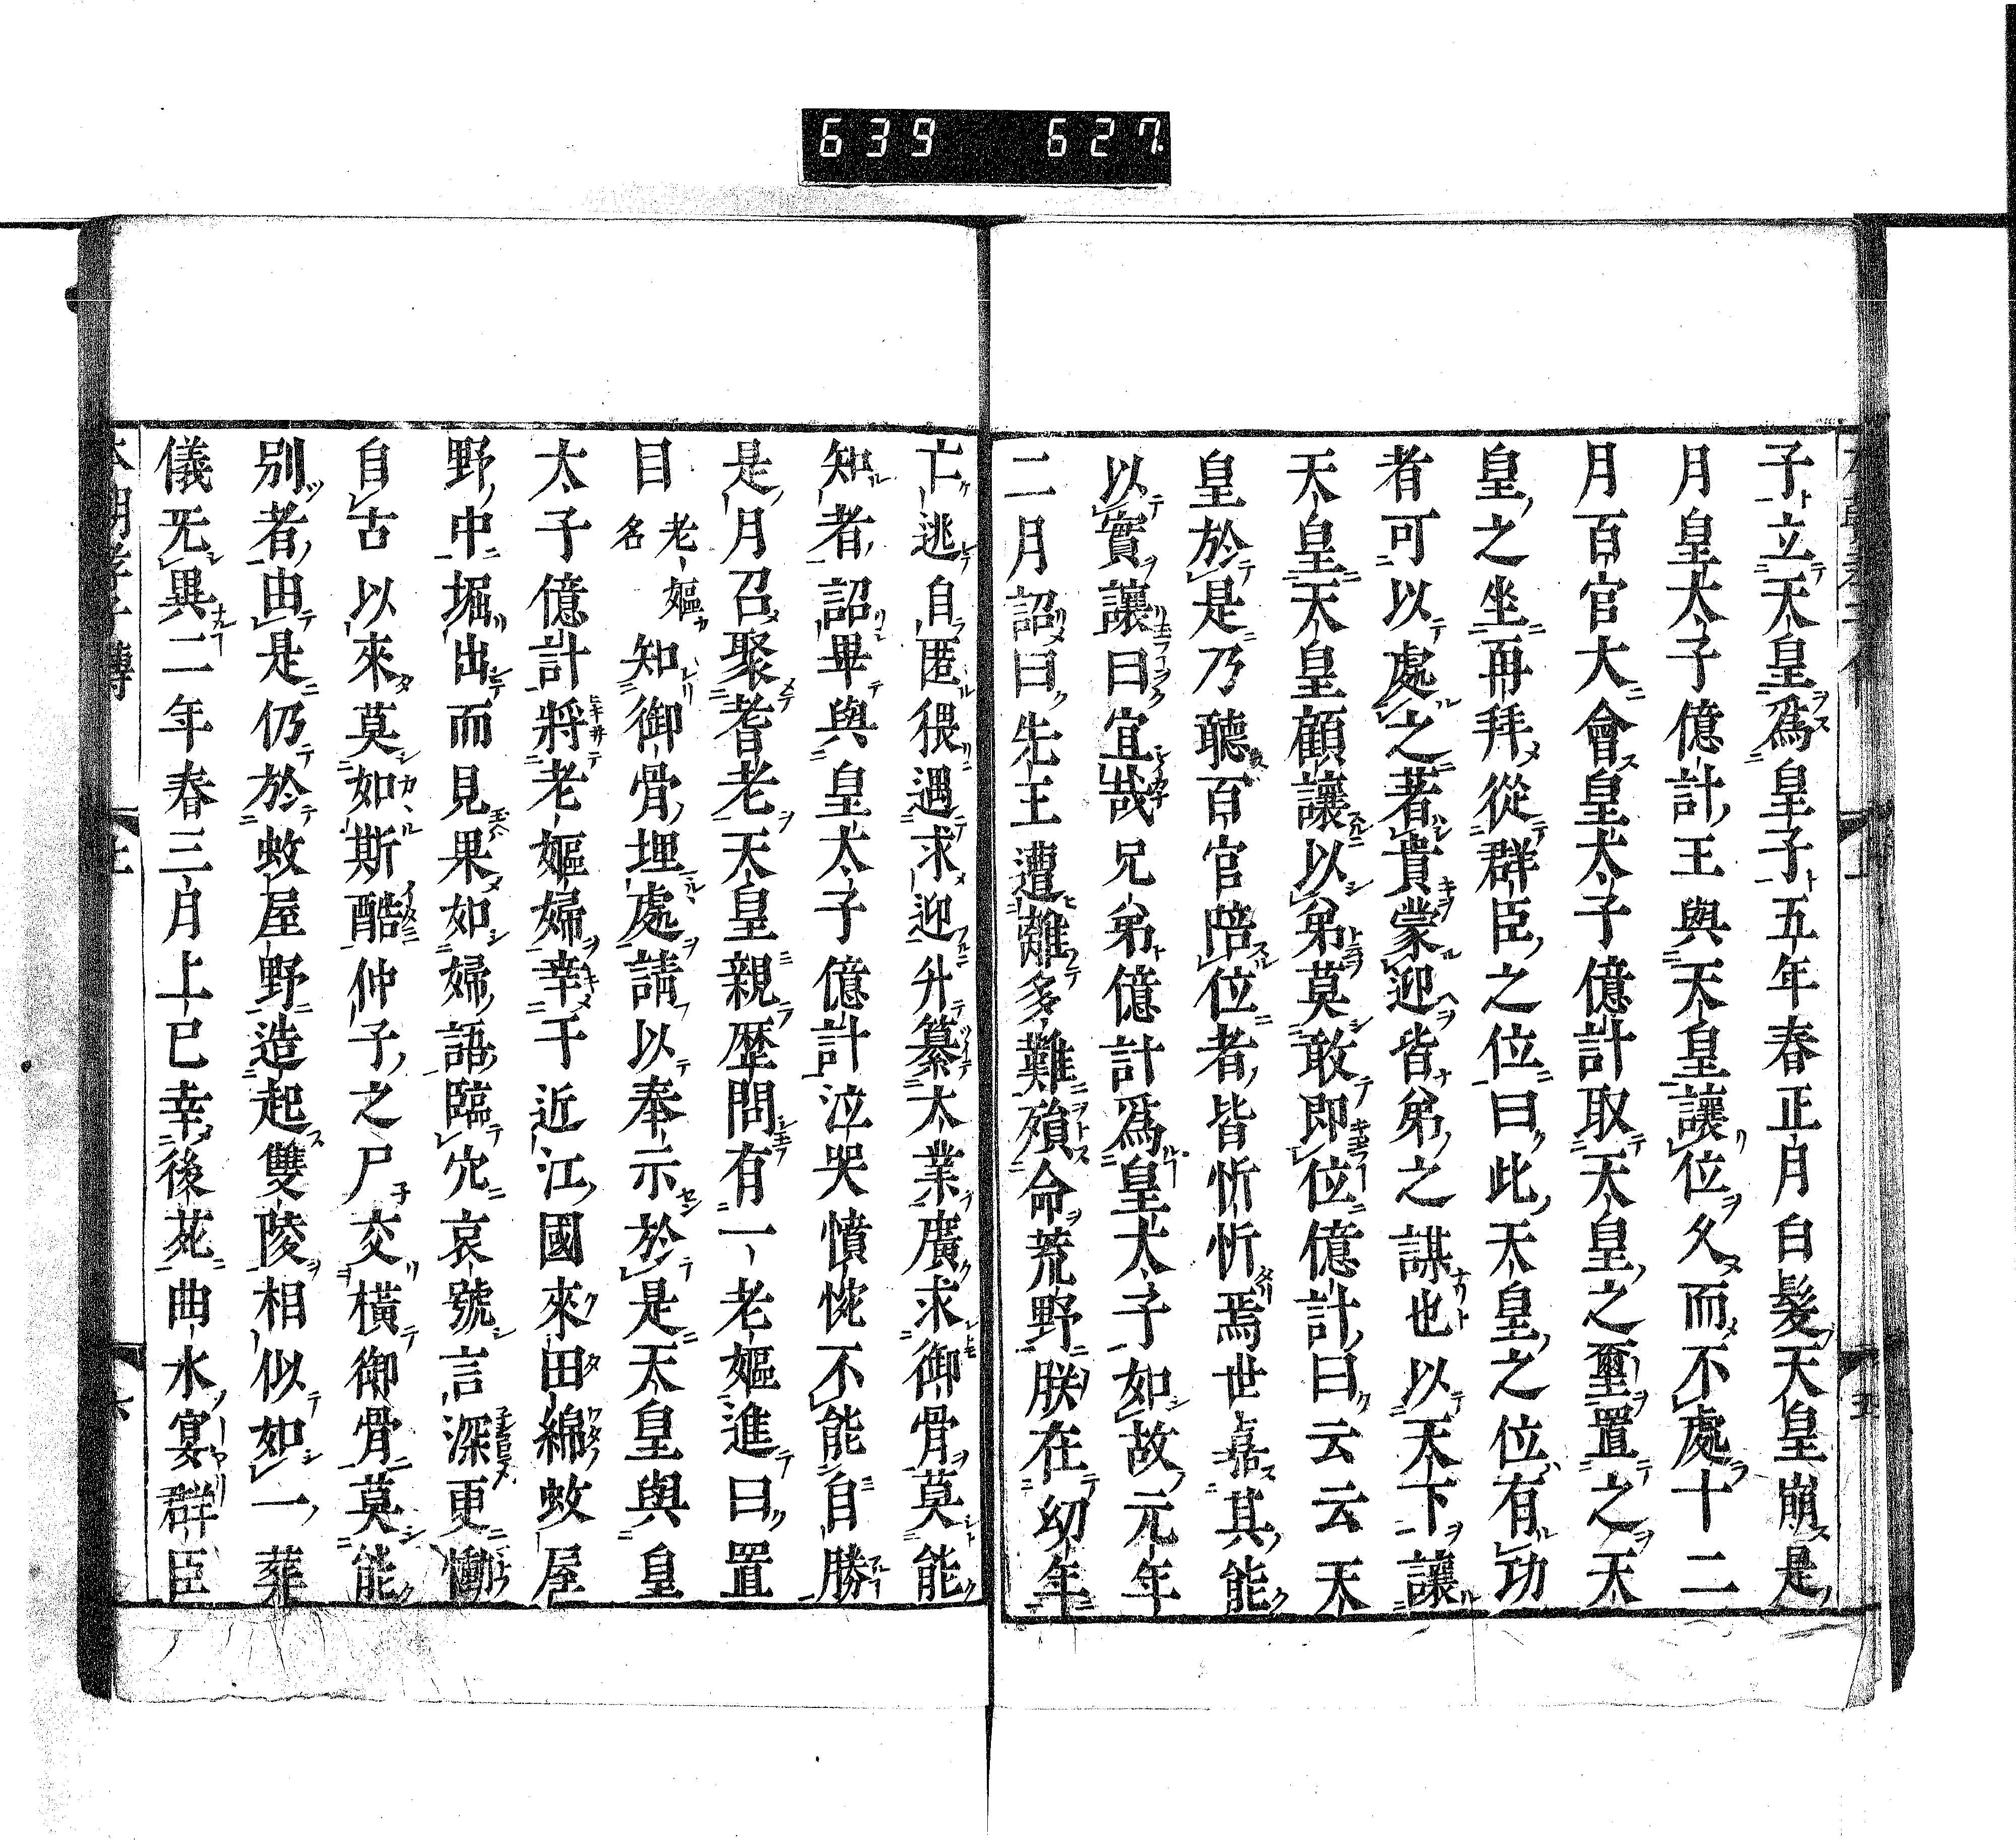 639 627
子立天皇爲皇子五年春正月白髮天皇崩是
月皇太子億計王與天皇讓位久而不處十二
月百官大會皇太子億計取天皇之璽置之天
皇之坐再拜從群臣之位曰此天皇之位有功
者可以處之著貴蒙迎皆弟之謀也以天下讓
天皇天皇顧讓以弟莫敢即位億計曰云云天
皇於是乃聽百官陪位者皆忻忻焉世嘉其能
以實讓曰宜哉兄弟億計爲皇太子如故元年
二月詔曰先王遭離多難殞命荒野朕在幼年
亡逃自匿猥遇求迎升纂大業廣求御骨莫能
知者詔畢與皇太子億計泣哭憤惋不能自勝
是月召聚耆老天皇親歷問有一老嫗進曰置
目老嫗名知御骨埋處請以奉示於是天皇與皇
太子億計將老嫗婦幸于近江國來田綿蚊屋
野中堀出而見果如婦語臨穴哀號言深更慟
自古以來莫如斯酷仲子之尸交橫御骨莫能
別者由是仍於蚊屋野造起雙陵相似如一葬
儀无異二年春三月上巳幸後苑曲水宴群臣
本朝孝子傳
五